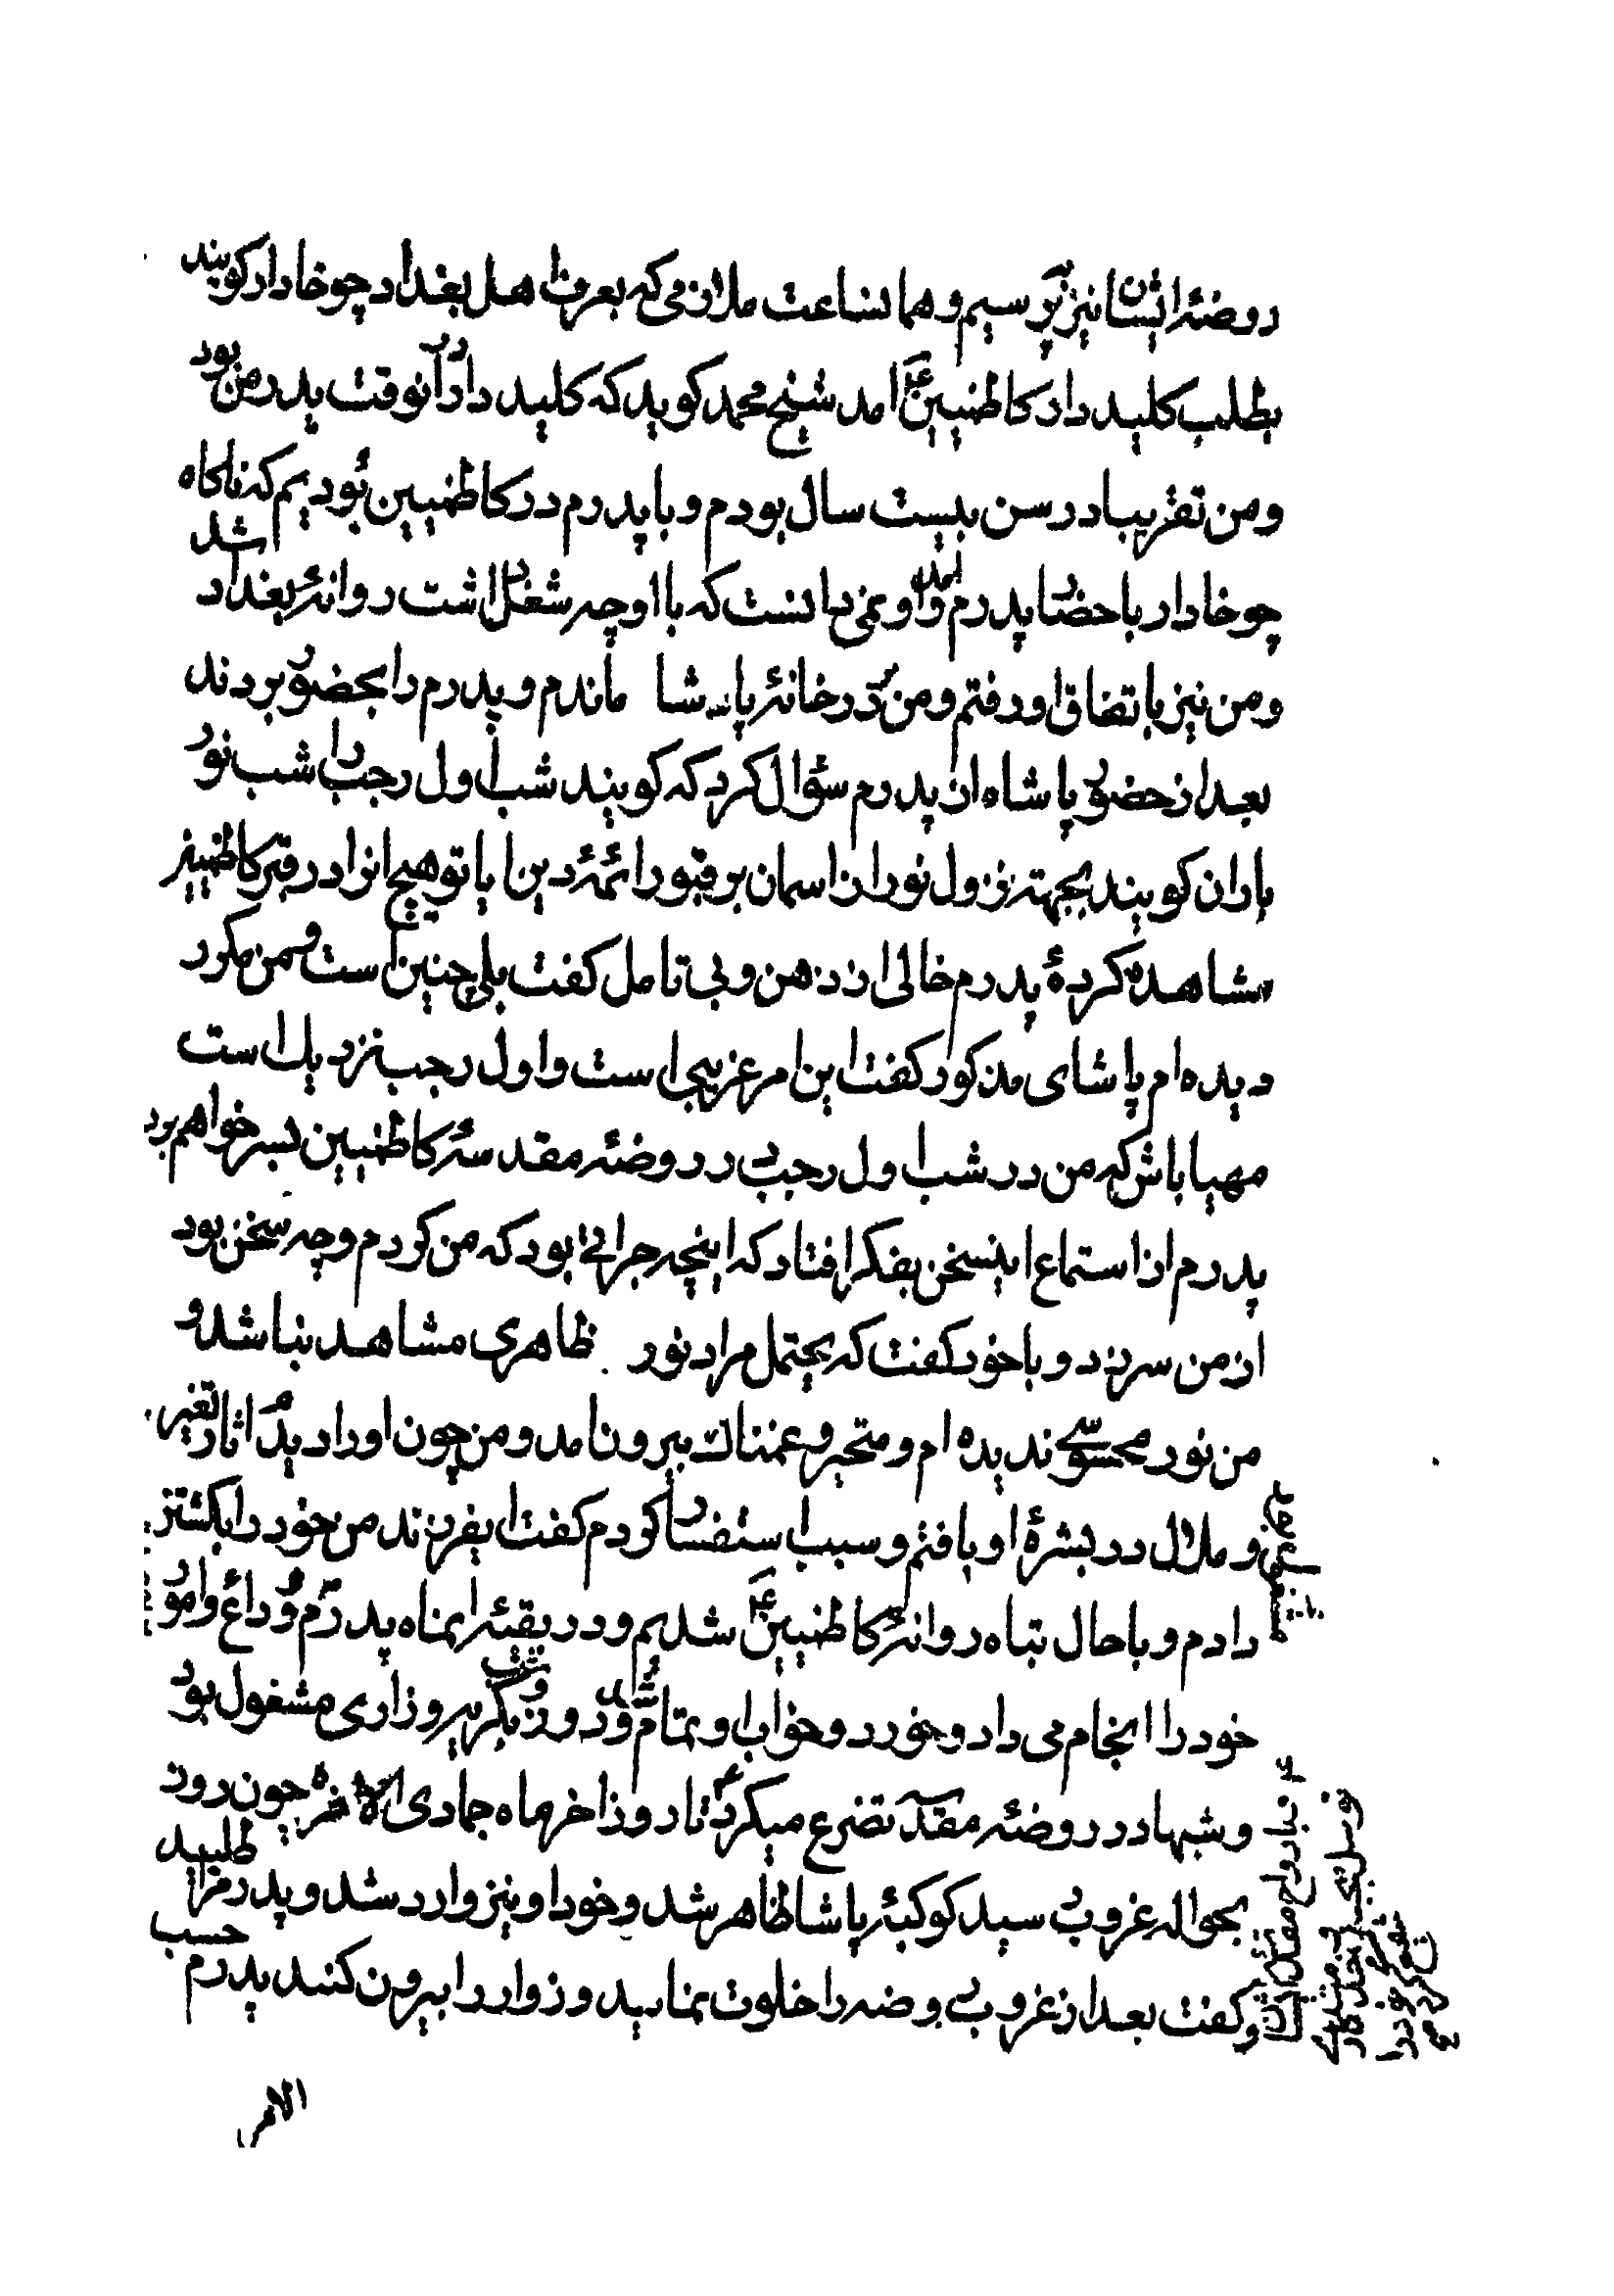 روضهٔ ایشان نیز برسیم و همانساعت ملازمی که بعرف اهل بغداد چوخادار کویند
بطلب کلید دار کاظمیین ع امد شیخ محمد کوید که کلید دار در آنوقت پدر من بود
و من تقریبا در سن بیست سال بودم و با پدرم در کاظمیین بودیم که ناکاه
چوخادار باحضار پدرم امد و او نمی دانست که با او چه شغل داشت روانهٔ بغداد شد
و من نیز باتفاق او رفتم و من بر در خانهٔ پاشا ماندم و پدرم را بحضور بردند
بعد از حضور پاشاه از پدرم سؤال کرد که کویند شب اول رجب را شب نور
باران کویند بجهته نزول نور از اسمان بر قبور ائمهٔ دین ایا تو هیچ انرا در قبر کاظمیین
مشاهده کردهٔ پدرم خالی از ذهن و بی تامل کفت بلی چنین است و من مکرر
دیده ام پاشای مذکور کفت این امر غریبی است و اول رجب نزدیک است
مهیا باش که من در شب اول رجب در روضهٔ مقدسهٔ کاظمیین بسر خواهم برد
پدرم از استماع اینسخن بفکر افتاد که اینچه جراتی بود که من کردم و چه سخن بود
از من سر زد و با خود کفت که یحتمل مراد نور ظاهری مشاهد نباشد و
من نور محسوسی ندیده ام و متحیر و غمناک بیرون امد و من چون او را دیدم اثار تغیر
و ملال در بشرهٔ او یافتم و سبب استفسار کردم کفت ایفرزند من خود را بکشتن
دادم و با حال تباه روانهٔ کاظمیین ع شدیم و در بقیهٔ اینماه پدرم وداع و امور
خود را انجام می داد و خورد و خواب او تمام شد و روز و شب بکریه و زاری مشغول بود
و شبها در روضهٔ مقدسه تضرع میکرد تا روز اخر ماه جمادی الاخره چون روز
بحواله غروب رسید کوکبهٔ پاشا ظاهر شد و خود او نیز وارد شد و پدر مرا طلبید
و کفت بعد از غروب روضه را خلوت نمایید و زوار را بیرون کنید پدرم حسب
الامر